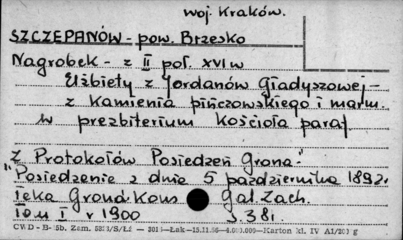 woj. Kraków.
SZCZEPANÓW - pow. Brzesko
Nagrobek - z II poł. XVI w
Elżbiety z Jordanów Gładyszowej -
z kamienia pińczowskiego i marm.
w prezbiterium kościoła paraf.
"Z Protokołów Posiedzeń Grona"
"Posiedzenie z dnia 5 października 1892r.
Teka Grona Kons Gal. Zach.
Tom I r 1900 S. 381.